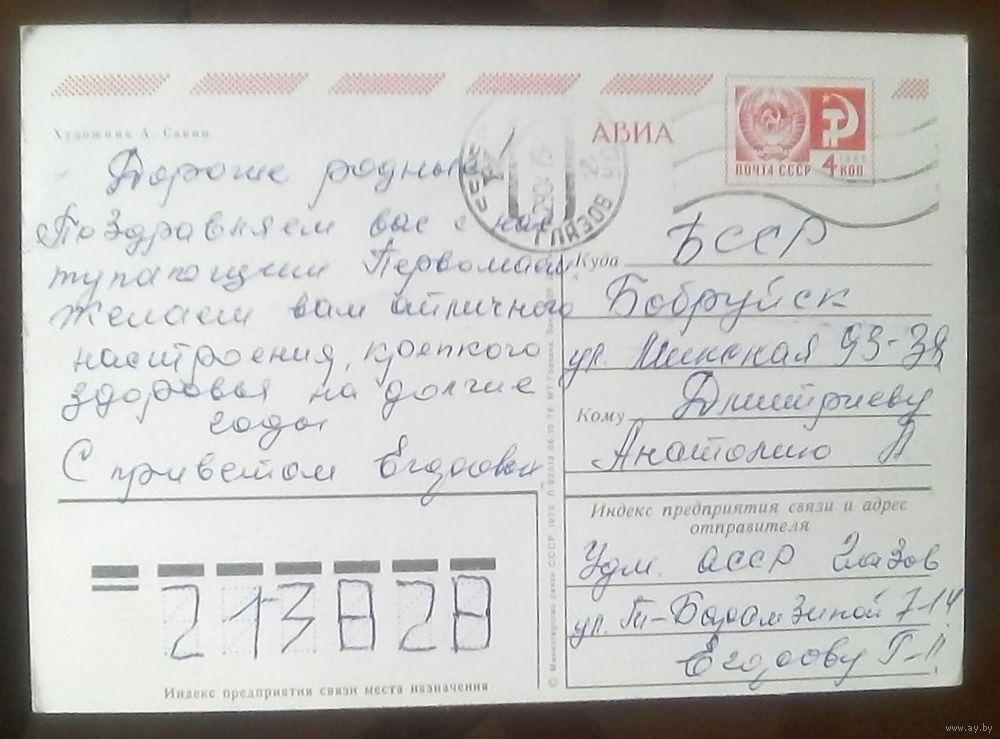 Художник А. Савин
АВИА
ПОЧТА СССР 4 КОП
1966
ГЛАЗОВ
Дорогие родные!
Поздравляем вас с нас
тупающим Первомаем
Желаем вам отличного
настроения, крепкого
здоровья на долгие
годы
С приветом Егоровы
Куда БССР
Бобруйск
ул. Минская 93-38
Кому Дмитриеву
Анатолию П
Индекс предприятия связи и адрес
отправителя
Удм. АССР Глазов
ул. Т-Барамзиной 7-14
Егорову Г-П
213828
Индекс предприятия связи места назначения
© Министерство связи СССР. 1978
www.ay.by